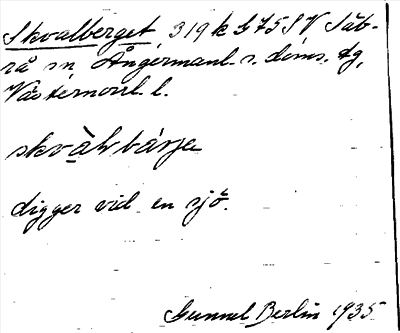 Skvalberget, 319 k G75 SV Säb-
rå sn, Ångermanl. s. doms. tg,
Västernorrl. l.
skvàlbárje
digger vid en sjö.
Gunnel Berlin 1935